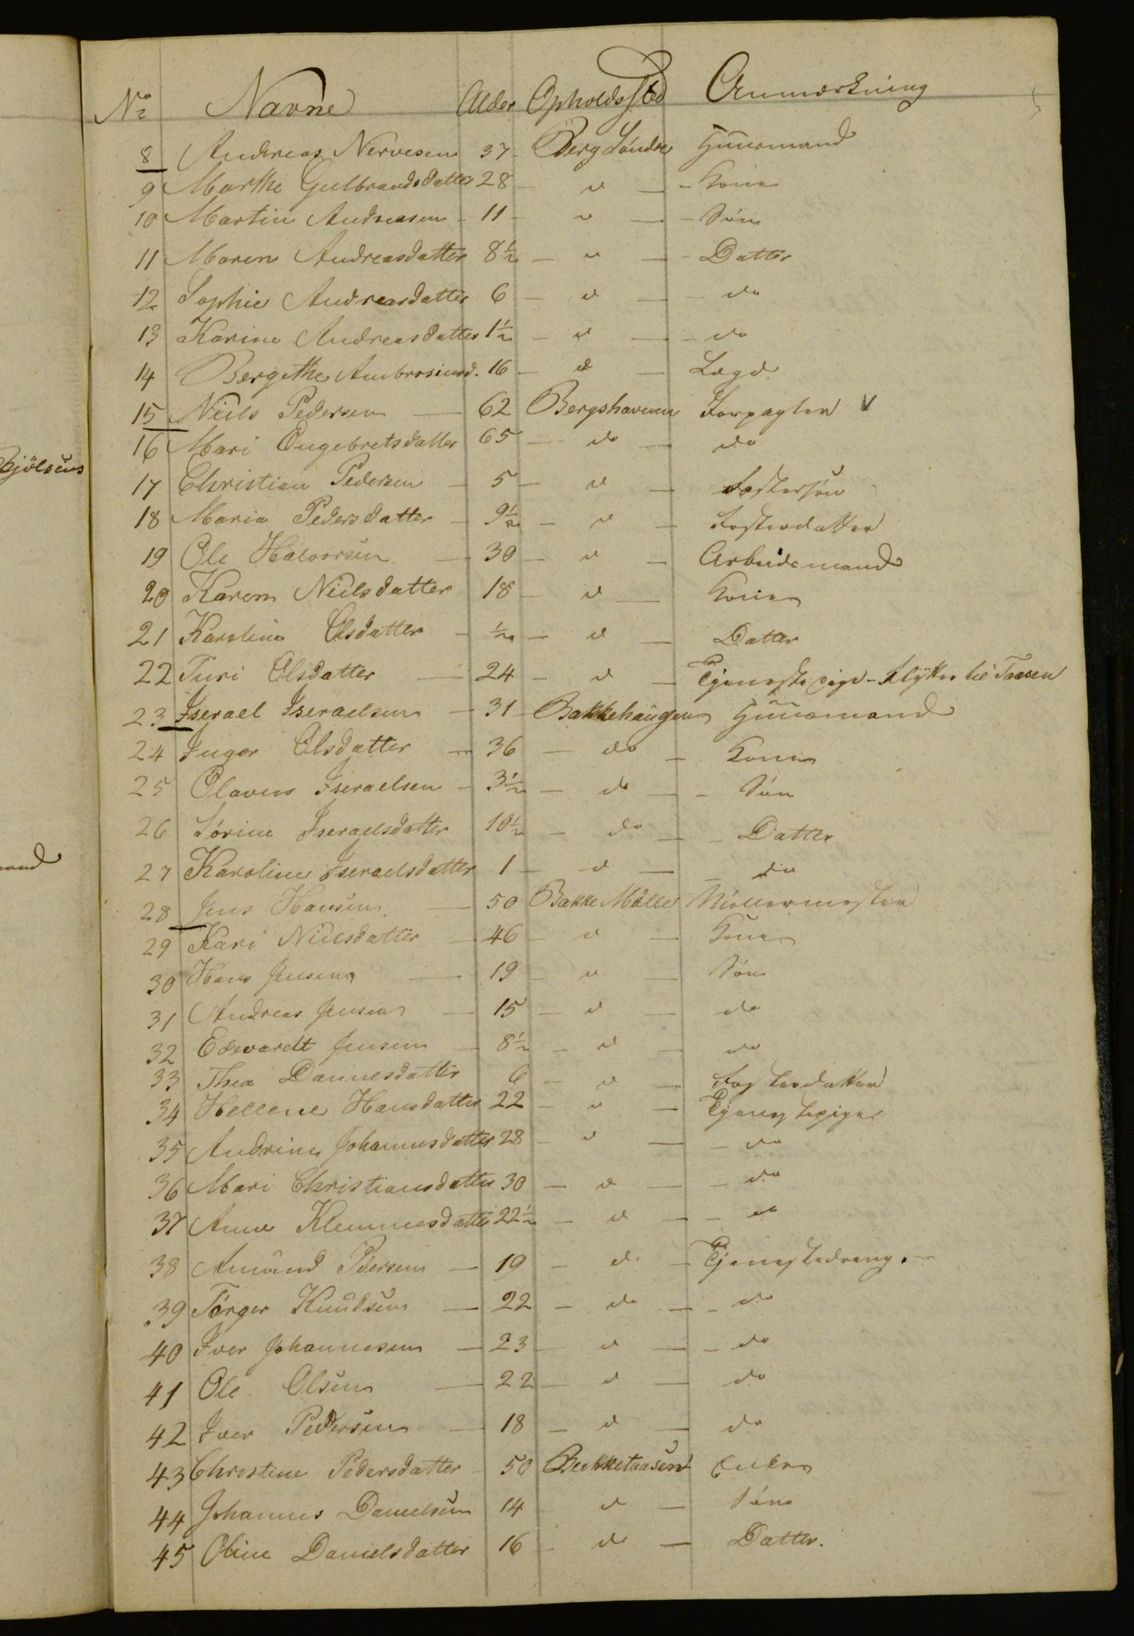 No Navne Alder Opholdssted Anmærkning
8 Andreas Nervesen 37 Berg Søndre Huusmand
9 Marthe Gulbrandsdatter 28 – d – Kone
10 Martin Andreasen – 11 – d – Søn
11 Maren Andreasdatter 8½ – d – Datter
12 Sophie Andreasdatter 6 – d – do
13 Karine Andreasdatter 1½ – d – do
14 Bergithe Ambrosiusd. 16 – d – Lægd.
15 Niels Pedersen – 62 Bergshavenn Forpagter V
16 Mari Engebretsdatter 65 – do – do
17 Christian Pedersen – 5 – d – Fostersøn
18 Maria Pedersdatter – 9½ – d – Fosterdatter
19 Ole Halvorsen – 30 – d – Arbeidsmand
20 Karen Nielsdatter 18 – d – Kone
21 Karoline Olsdatter – ½ – d – Datter
22 Turi Olsdatter – 24 – d – Tjenestepige – Flytter til Taasen
23 Iserael Iseraelsen – 31 – Bakkehaugen Huusmand
24 Inger Olsdatter – 36 – do – Kone
25 Olavus Iseraelsen – 3½ – do – Søn
26 Sørine Iseraelsdatter 10½ – do – Datter
27 Karoline Iseraelsdatter 1 – d – do
28 Jens Hansen – 50 Bakke Mølle Møllermester
29 Kari Nielsdatter – 46 – d – Kone
30 Hans Jensen – 19 – d – Søn
31 Andreas Jensen – 15 – d – do
32 Edevardt Jensen – 8½ – d – do
33 Thea Danielsdatter 6 – d – Fosterdatter
34 Hellene Hansdatter 22 – d – Tjenestepige
35 Andrine Johannesdatter 28 – d – do
36 Mari Christiansdatter 30 – d – do
37 Anne Klemmesdatter 22½ – d – do
38 Amund Peersen – 19 – d – Tjenestedreng.
39 Törger Knudsen – 22 – do – do
40 Iver Johannesen – 23 – d – do
41 Ole Olsen – 22 – d – do
42 Iver Pedersen – 18 – d – do
43 Christine Pedersdatter 50 Bekketaasen Enke
44 Johannes Danielsen 14 – d – Søn
45 Oline Danielsdatter 16 – do – Datter.